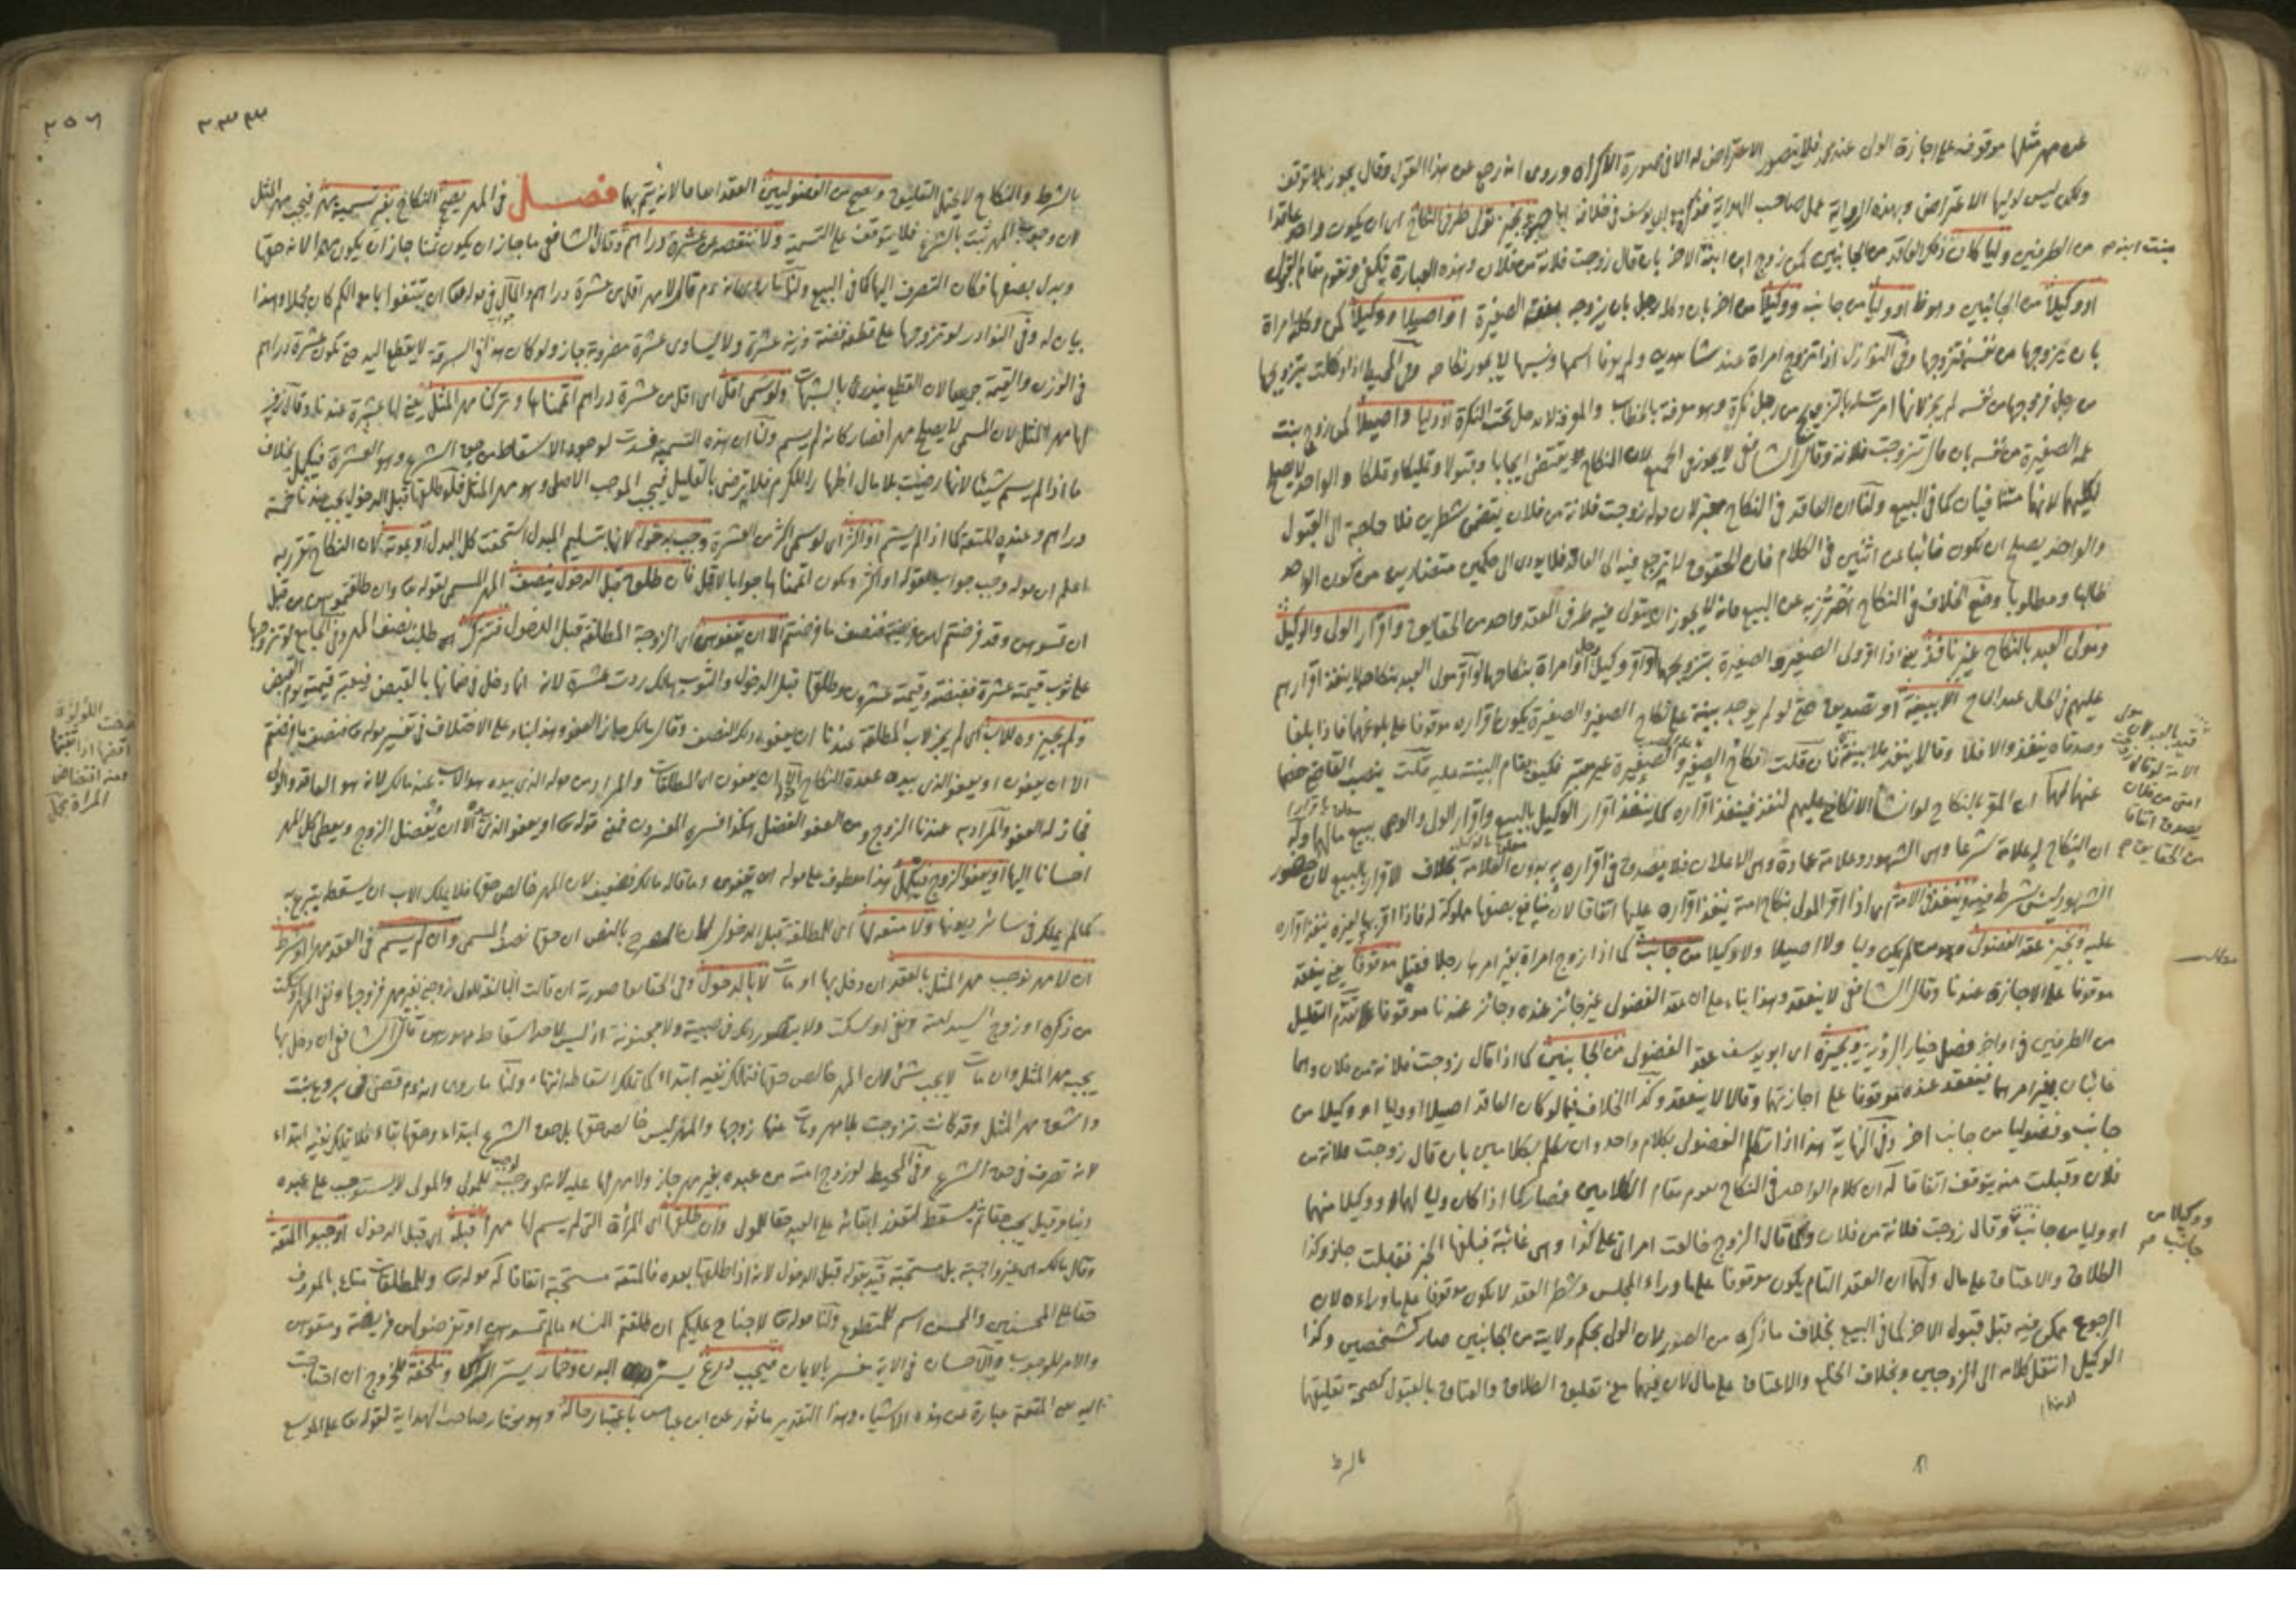 عن مهر مثلها موقوفة على اجازة الولى عند محمد فلا يتصور الاعتراض له الا فى صورة الاكراه وروى انه رجع عن هذا القول وقال يجوز بلا توقف
ولكن ليس لوليها الا الاعتراض وبهذه الرواية عمل صاحب الهداية
من الطرفين وليا كان ذلك العاقد من الجانبين كمن زوج ابن ابنه بنت ابنه الاخر بان قال زوجت فلانة من فلان وهذه العبارة تكفى وتقوم مقام
او وكيلا من الجانبين وهو ظ او وليا من جانب ووكيلا من اخر بان وكله رجل بان يزوجه بنته الصغيرة او اصيلا ووكيلا كمن وكلته امراة
بان يتزوجها من نفسه فتزوجها وفى النوازل اذا تزوج امراة عند شاهدين ولم يعرفا اسمها ونسبها لا يجوز نكاحه وفى المحيط اذا وكلت بتزويجها
من رجل فزوجها من نفسه لم يجز لانها امرته بالتزويج من رجل نكرة وهو معرفة بالخطاب والمعرفة لا تدخل تحت النكرة او وليا واصيلا كمن زوج بنت
عمه الصغيرة من نفسه بان قال تزوجت فلانة وقال الشافعى لا يجوز فى الجميع لان النكاح يقتضى ايجابا وقبولا وتمليكا وتملكا والواحد لا يصلح
لكليهما لانهما متنافيان كما فى البيع ولنا ان العاقد فى النكاح معبر لان قوله زوجت فلانة من فلان يتضمن شطرين فلا حاجة الى القبول
والواحد يصلح ان يكون نائبا عن اثنين فى الكلام فان الحقوق لا ترجع فيه الى العاقد فلا يؤدى الى حكمين متضادين من كون الواحد
طالبا ومطلوبا وضع الخلاف فى النكاح احترز به عن البيع فانه لا يجوز ان يتولى فيه طرفى العقد واحد من الحقايق واقرار الولى والوكيل
ومولى العبد بالنكاح غير نافذ يعنى اذا اقر ولى الصغير والصغيرة بتزويجهما او اقر وكيل رجل او امراة بنكاحهما او اقر مولى العبد بنكاحه لا ينفذ اقرارهم
عليهم فى الحال عند ابى ح الا ببينة او تصديق حتى لو لم يوجد بينة على نكاح الصغير والصغيرة يكون اقراره موقوفا على بلوغهما فاذا بلغا
وصدقاه ينفذ والا فلا وقالا ينفذ بلا بينة فان قلت انكاح الصغير والصغيرة غير معتبر فكيف تقام البينة عليه قلت ينصب القاضى خصما
عنهما لهما ان المقر بالنكاح لو انشأ الانكاح عليهم لنفذ فينفذ اقراره كما ينفذ اقرار الوكيل بالبيع واقرار الولى والوصى ببيع مالهما وله
ان النكاح له علامة شرعا وهى الشهود وعلامة عادة وهى الاعلان فلا يصدق فى اقراره به بدون العلامة بخلاف الاقرار بالبيع لان حضور
الشهود ليس بشرط فيه وينفذ فى الامة م اذا اقر المولى بنكاح امته ينفذ اقراره عليها اتفاقا لان منافع بضعها مملوكة له فاذا اقر بها لغيره ينفذ اقراره
عليه ويجيز عقد الفضولى وهو من لم يكن وليا ولا اصيلا ولا وكيلا من جانب كما اذا زوج امراة بغير امرها رجلا فقبل موقوفا يعنى ينعقد
موقوفا على الاجازة عندنا وقال الشافعى لا ينعقد وهذا بناء على ان عقد الفضولى غير جائز عنده وجائز عندنا موقوفا تقدم التعليل
من الطرفين فى اواخر فصل خيار الرؤية ويجيزه اى ابو يوسف عقد الفضولى من الجانبين كما اذا قال زوجت فلانة من فلان وهما
غائبان بغير امرهما فينعقد عنده موقوفا على اجازتهما وقالا لا ينعقد وكذا الخلاف فيما لو كان العاقد اصيلا او وليا او وكيلا من
جانب وفضوليا من جانب اخر وفى النهاية هذا اذا تكلم الفضولى بكلام واحد وان تكلم بكلامين بان قال زوجت فلانة من
فلان وقبلت منه يتوقف اتفاقا له ان كلام الواحد فى النكاح يقوم مقام الكلامين فصار كما اذا كان وليا لهما او وكيلا منهما
او وليا من جانب وقال زوجت فلانة من فلان وكما قال الزوج خالعت امراتى على كذا وهى غائبة فبلغها الخبر فقبلت جاز وكذا
الطلاق والاعتاق على مال ولهما ان العقد التام يكون موقوفا على ما وراء المجلس وشطر العقد لا يكون موقوفا على ما وراءه لان
الرجوع ممكن فيه قبل قبول الاخر كما فى البيع بخلاف ما ذكره من الصور لان الولى بحكم ولايته من الجانبين صار كشخصين وكذا
الوكيل انتقل كلامه الى الزوجين وبخلاف الخلع والاعتاق على مال لان فيهما معنى تعليق الطلاق والعتاق بالقبول كصحة تعليقهما
بالشرط
قيد بالعبد لان مولى
الامة لو قال
امتى من فلان
يصدق اتفاقا
من الحقايق
ووكيلا من
جانب صح
٣٣٣
بالشرط والنكاح لا يحتمل التعليق ويصح من الفضوليين العقد اجماعا لانه يتم بهما فصل فى المهر يصح النكاح بغير تسمية مهر فيجب مهر المثل
لان وجوب المهر ثبت بالشرع فلا يتوقف على التسمية ولا ننقصه من عشرة دراهم وقال الشافعى ما جاز ان يكون ثمنا جاز ان يكون مهرا لانه حقها
وبدل بضعها فكان التصرف اليها كما فى البيع ولنا ما روى انه ءم قال لا مهر اقل من عشرة دراهم والمال فى قوله تعالى ان تبتغوا باموالكم كان مجملا وهذا
بيان له وفى النوادر لو تزوجها على قطعة فضة وزنه عشرة ولا يساوى عشرة مضروبة جاز ولو كان هذا فى السرقة لا يقطع اليد حتى تكون عشرة دراهم
فى الوزن والقيمة جميعا لان القطع يندرئ بالشبهات ولو سمى اقل اى اقل من عشرة دراهم اتممناها وتركنا مهر المثل يعنى لها عشرة عندنا وقال زفر
لها مهر المثل لان المسمى لا يصلح مهرا فصار كانه لم يسم ولنا ان هذه التسمية فسدت لوجود الاسقاط من حق الشرع وهو العشرة فيكمل بخلاف
ما اذا لم يسم شيئا لانها رضيت بلا مال اظهارا للكرم فلا ترضى بالقليل فيجب الموجب الاصلى وهو مهر المثل فلو طلقها قبل الدخول يجب عندنا خمسة
دراهم وعنده المتعة كما اذا لم يسم او اكثر اى لو سمى اكثر من العشرة وجب بدخوله لانها بتسليم المبدل استحقت كل البدل او بموته لان النكاح تقرر به
اعلم ان قوله وجب جواب لقوله او اكثر ويكون اتممناها جوابا لاقل فان طلق قبل الدخول ينصف المهر المسمى لقوله تعالى وان طلقتموهن من قبل
ان تمسوهن وقد فرضتم لهن فريضة فنصف ما فرضتم الا ان يعفون اى الزوجة المطلقة قبل الدخول فتترك طلب نصف المهر وفى الجامع لو تزوجها
على ثوب قيمته عشرة فقبضته وقيمته عشرون وطلقها قبل الدخول والثوب هالك ردت عشرة لانه انما دخل فى ضمانها بالقبض فيعتبر قيمته يوم القبض
ولم يجيزوه للاب اى لم يجز لاب المطلقة عندنا ان يعفو ذلك النصف وقال مالك جاز العفو وهذا بناء على الاختلاف فى تفسير قوله تعالى فنصف ما فرضتم
الا ان يعفون او يعفو الذى بيده عقدة النكاح اى الا ان يعفون اى المطلقات والمراد من قوله الذى بيده هو الاب عند مالك لانه هو العاقد والولى
فجاز له العفو والمراد به عندنا الزوج ومن العفو الفضل هكذا فسره المفسرون فمعنى قوله تعالى او يعفو الذى الا ان يفضل الزوج ويعطى كل المهر
احسانا اليها او يعفو الزوج فيكمل هذا معطوف على قوله ان يعفون وما قاله مالك ضعيف لان المهر خالص حقها فلا يملك الاب ان يسقط بتبرعه
كما لم يملك فى سائر ديونها ولا متعة لها اى للمطلقة قبل الدخول بالنص ان حقها نصف المسمى وان لم يسم فى العقد مهرا او شرط
ان لا مهر نوجب مهر المثل بالعقد ان دخل بها او مات لا بالدخول وفى الحقايق صورته ان قالت البالغة للولى زوجنى بغير مهر فزوجها ونفى المهر او سكت
من ذكره او زوج السيد امته ونفى او سكت ولا يتصور ذلك فى صبية ولا مجنونة اذ ليس لاحد اسقاط مهورهن قال الشافعى ان دخل بها
يجب مهر المثل وان مات لا يجب شئ لان المهر خالص حقها فتملك نفيه ابتداء كما تملك اسقاطه انتهاء ولنا ما روى انه ءم قضى فى بروع بنت
واشق مهر المثل وقد كانت تزوجت بلا مهر ومات عنها زوجها والمهر ليس خالص حقها بل حق الشرع ابتداء وحقها بقاء فلا تملك نفيه ابتداء
لانه تصرف فى حق الشرع وفى المحيط لو زوج امته من عبده بغير مهر جاز ولا مهر لها عليه لانه لو وجب لوجب للمولى والمولى لا يستوجب على عبده
دينا وقيل يجب ثم يسقط لتعذر ابقائه على العبد حقا للمولى وان طلقها اى المراة التى لم يسم لها مهرا قبله اى قبل الدخول اوجبوا المتعة
وقال مالك هى غير واجبة بل مستحبة قيد بقوله قبل الدخول لانه اذا طلقها بعده فالمتعة مستحبة اتفاقا له قوله تعالى وللمطلقات متاع بالمعروف
حقا على المحسنين والمحسن اسم للمتطوع ولنا قوله تعالى لا جناح عليكم ان طلقتم النساء ما لم تمسوهن او تفرضوا لهن فريضة ومتعوهن
والامر للوجوب والاحسان فى الاية مفسر بالايمان فيجب درع يستر البدن وخمار يستر الراس وملحفة للخروج ان احتاجت
اليه يعنى المتعة عبارة عن هذه الاشياء وهذا التقدير ماثور عن ابن عباس باعتبار حاله وهو مختار صاحب الهداية لقوله تعالى على الموسع
٢٥٦